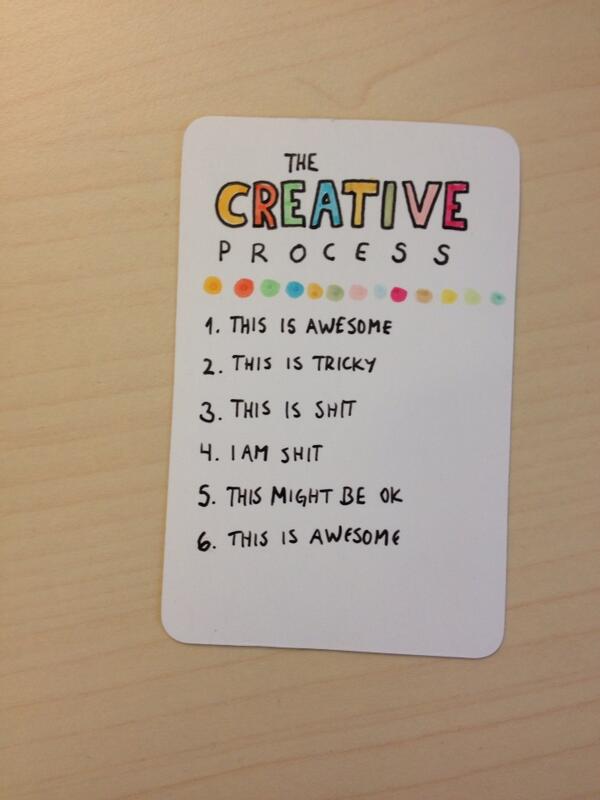 THE
CREATIVE
PROCESS
1. THIS IS AWESOME
2. THIS IS TRICKY
3. THIS IS SHIT
4. I AM SHIT
5. THIS MIGHT BE OK
6. THIS IS AWESOME